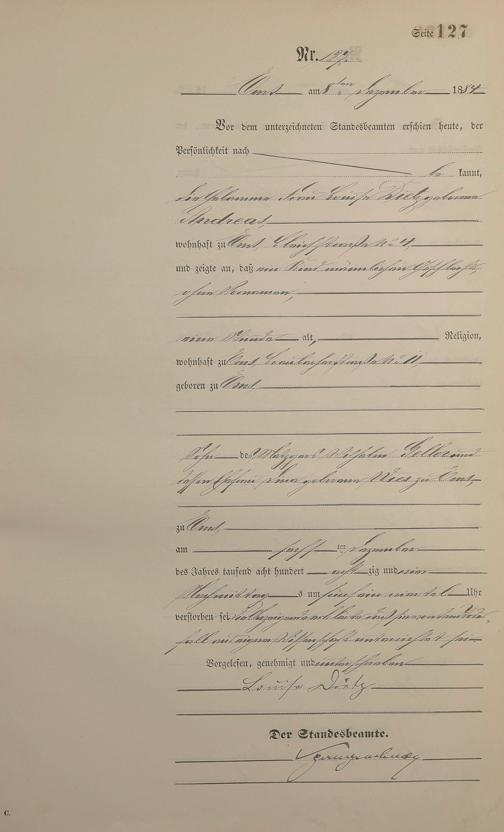 Seite 127
Nr. 127.
Ems am 8ten Dezember 1884
Vor dem unterzeichneten Standesbeamten erschien heute, der
Persönlichkeit nach
be kannt,
die Hebamme Frau Louise Dietz geborene
Andreas,
wohnhaft zu Ems, No 4,
und zeigte an, daß ein Kind männlichen Geschlechts,
ohne Vornamen,
eine Stunde alt, Religion,
wohnhaft zu Ems, No 11,
geboren zu Ems,
Sohn des Metzgers Wilhelm und
dessen Ehefrau geborene zu Ems,
zu Ems,
am sechsten Dezember
des Jahres tausend acht hundert achtzig und vier
Nachmittags um fünf ein viertel Uhr
verstorben sei.
fall aus eigener Wissenschaft unterrichtet sei
Vorgelesen, genehmigt und unterschrieben
Louise Dietz
Der Standesbeamte.
C.